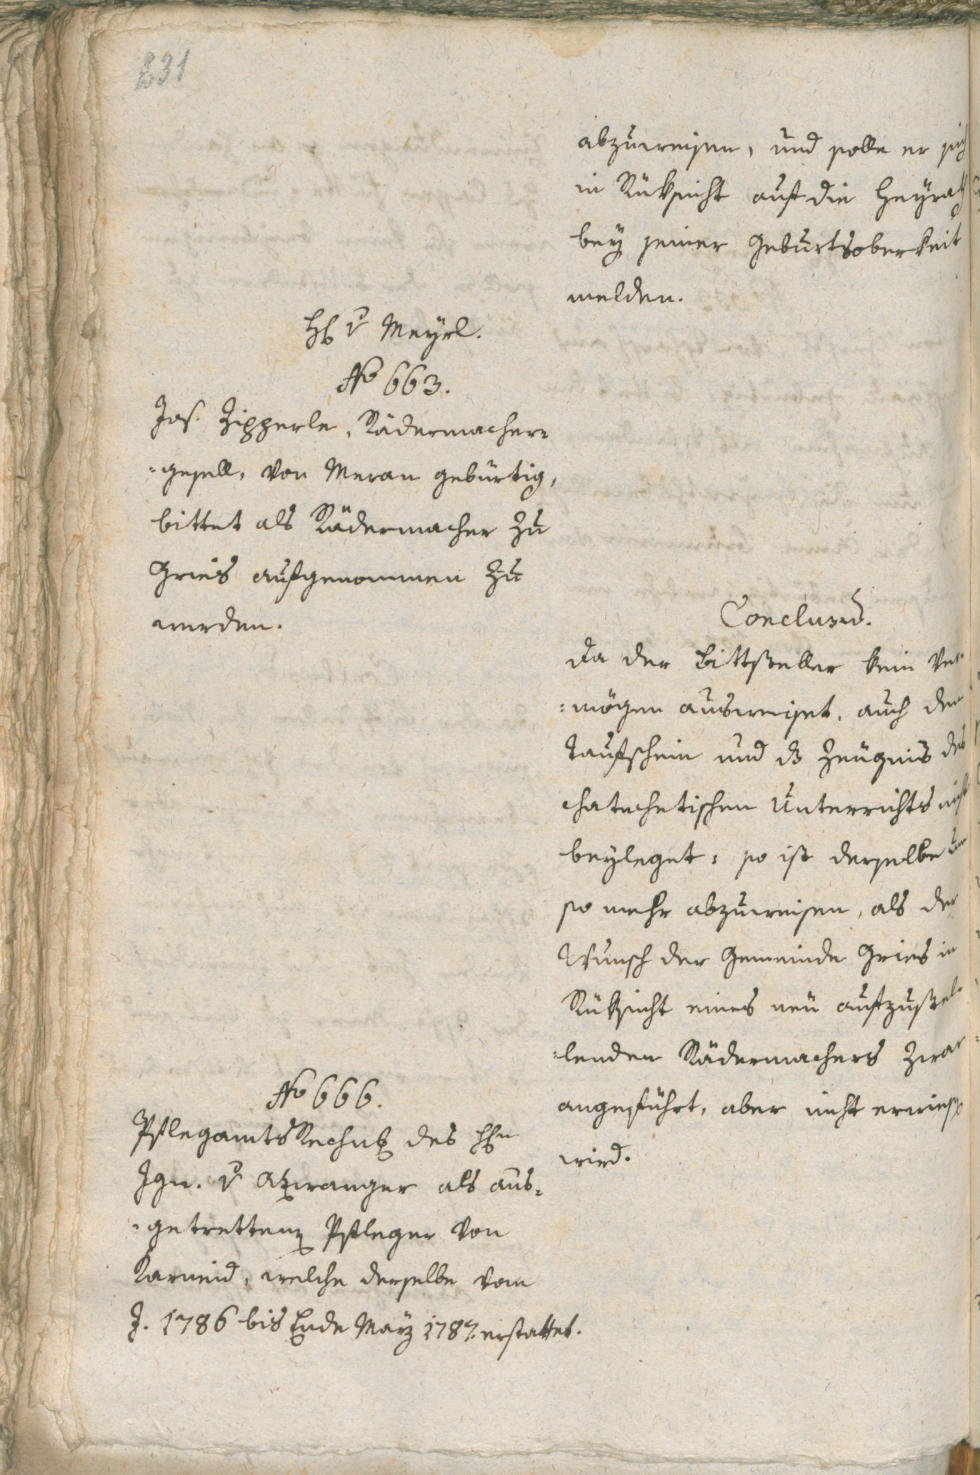 231
abzuweisen, und solle er sich
in Rüksicht auf die Heyrath
bey seiner Geburtsobrigkeit
melden.
H. v Meyrl.
No 663.
Jos. Zipperle, Rädermacher=
=gesell, von Meran gebürtig,
bittet als Rädermacher zu
Gries aufgenommen zu
werden.
Conclusum.
Da der Bittsteller kein Ver=
=mögen ausweiset, auch den
Taufschein und das Zeugnis des
chatechetischen Unterrichts nicht
beyleget: so ist derselbe um
so mehr abzuweisen, als der
Wunsch der Gemeinde Gries in
Rüksicht eines neu aufzustel=
=lenden Rädermachers zwar
angeführt, aber nicht erwiesen
wird.
No 666.
PflegamtsRechnung des Hn
Ign. v Atzwanger als aus=
=getrettenen Pfleger von
Karneid, welche derselbe vom
J. 1786 bis Ende May 1787. erstattet.